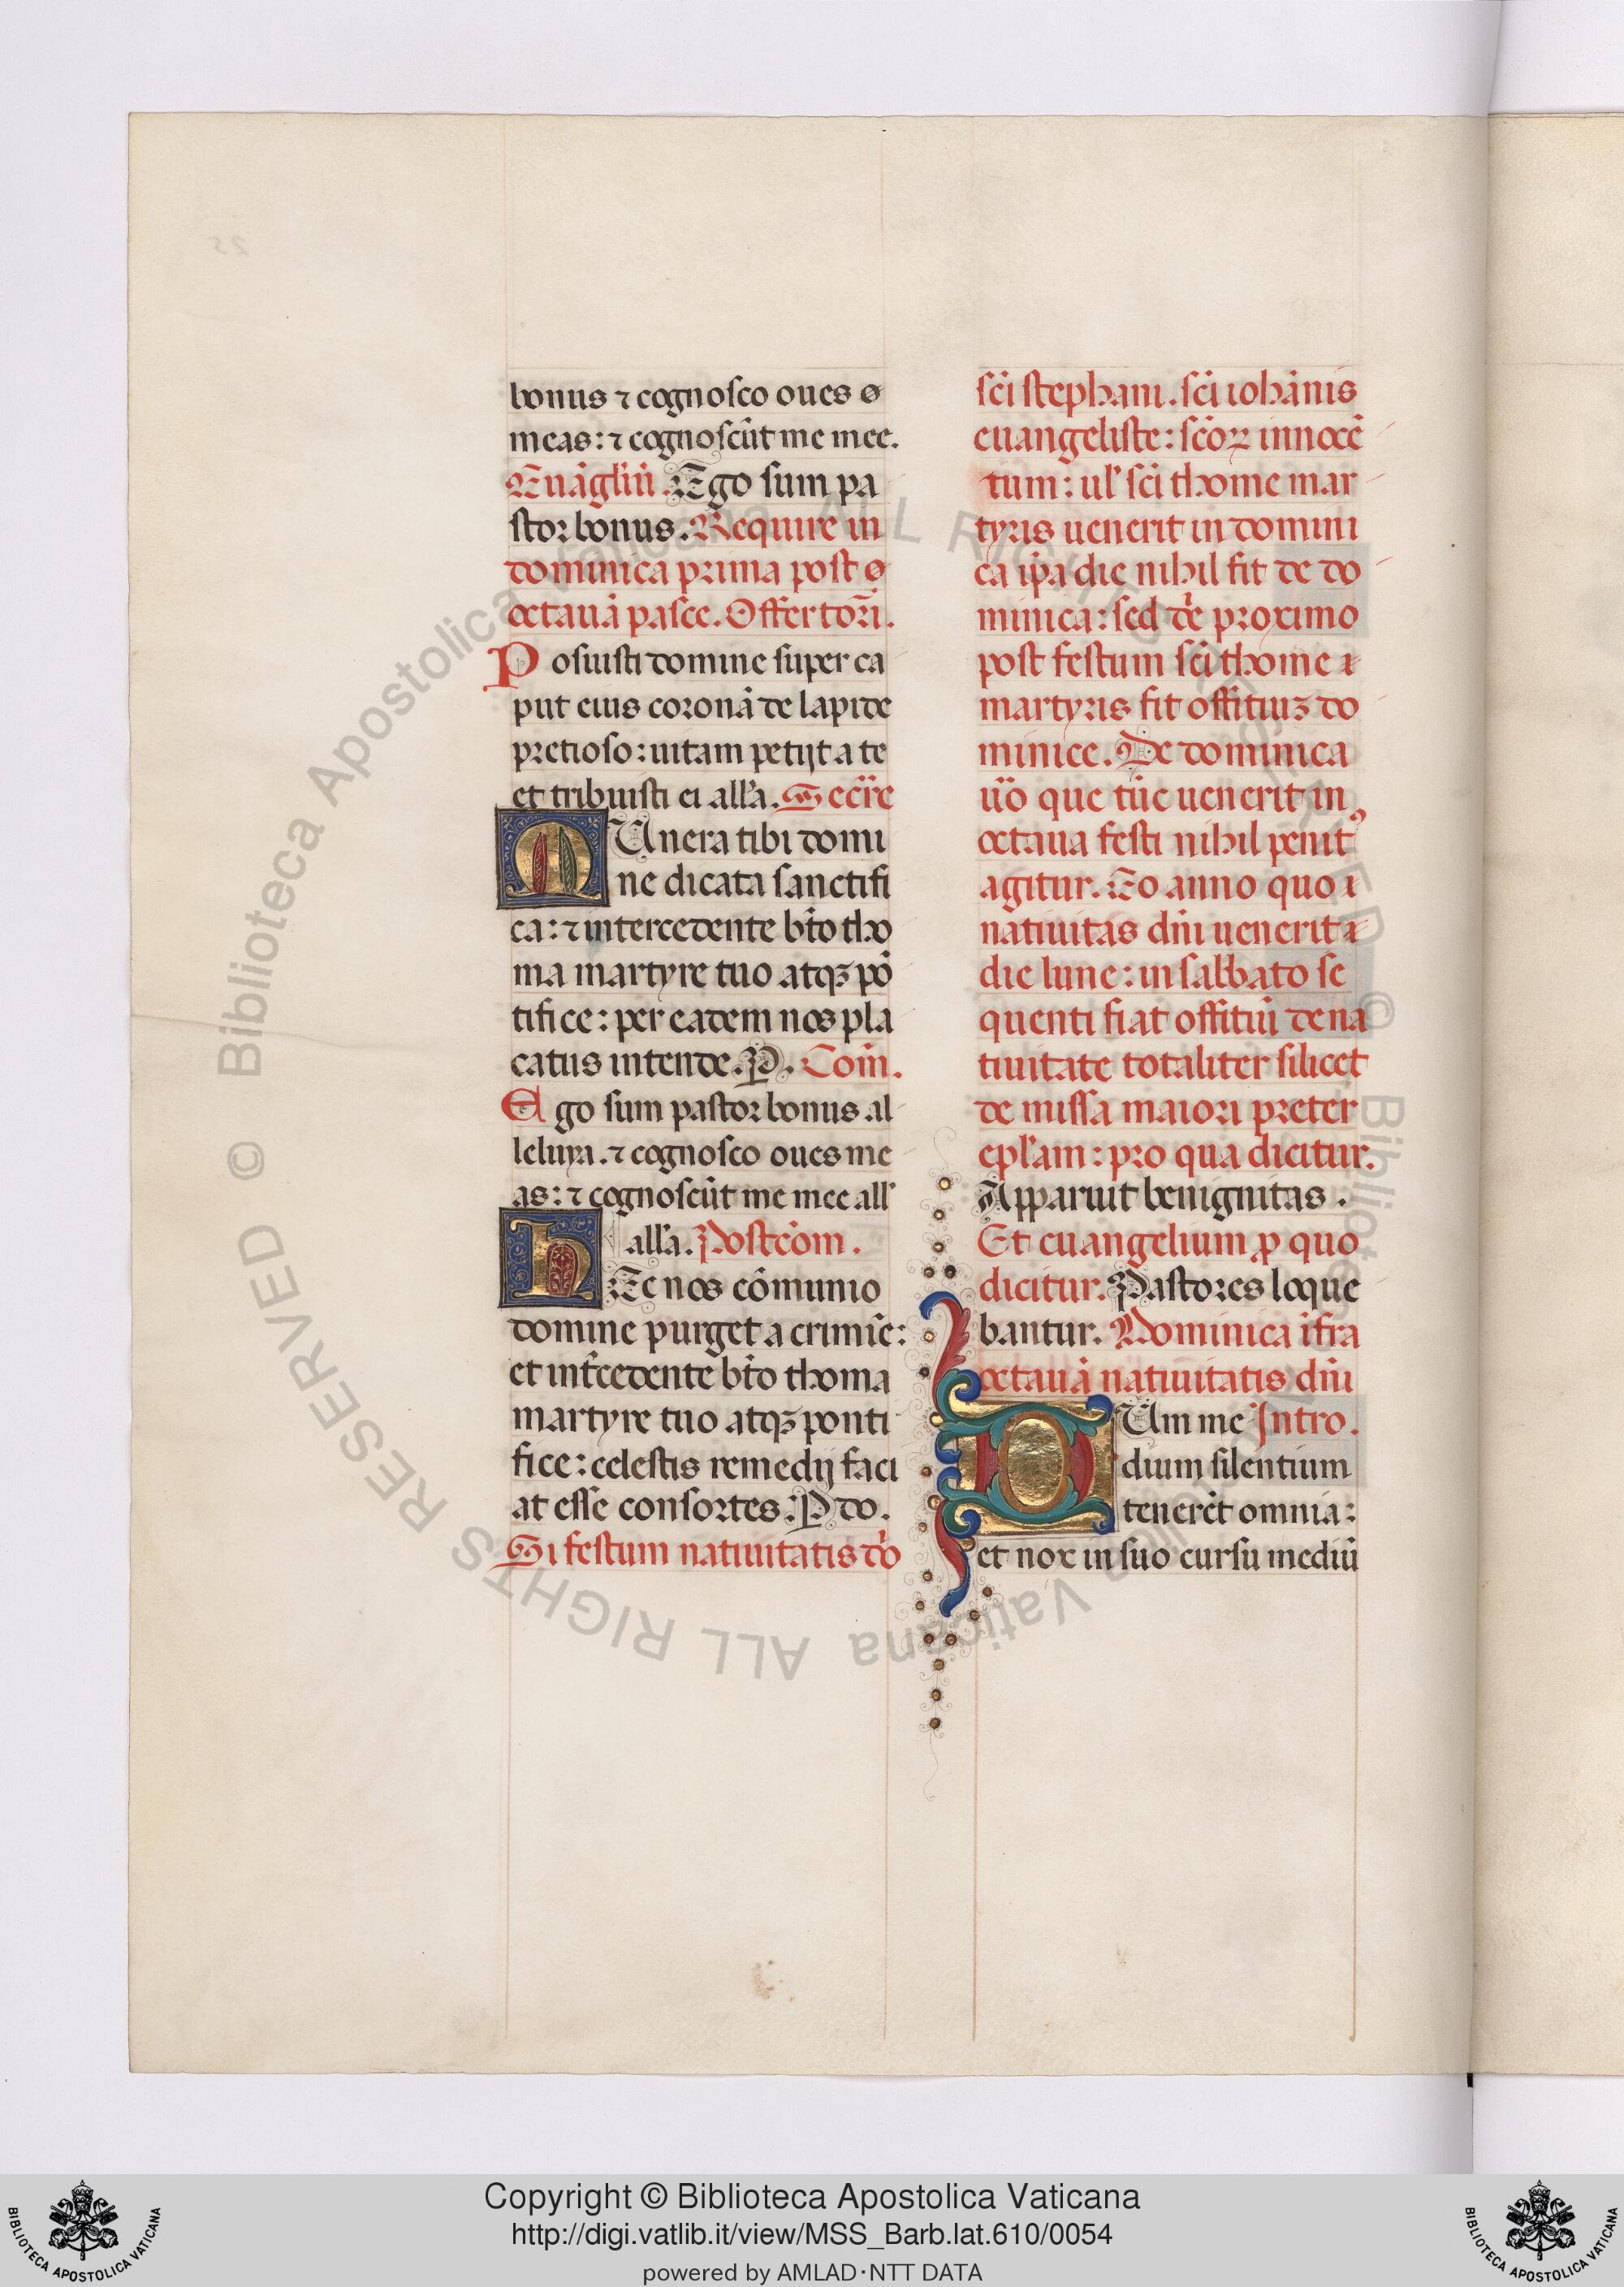 bonus ⁊ cognosco oues
meas: ⁊ cognoscūt me mee.
Euāgliū. Ego sum pa
stor bonus. Require in
dominica prima post
octauā pasce. Offertorī.
Posuisti domine super ca
put eius coronā de lapide
pretioso: uitam petijt a te
et tribuisti ei alla. Secre
MUnera tibi domi
ne dicata sanctifi
ca: ⁊ intercedente bto tho
ma martyre tuo atqꝫ pō
tifice: per eadem nos pla
catus intende. P. Com.
Ego sum pastor bonus al
leluya. ⁊ cognosco oues me
as: ⁊ cognoscūt me mee all
alla. Postcom.
hEc nos cōmunio
domine purget a crimīe:
et intcedente bto thoma
martyre tuo atqꝫ ponti
fice: celestis remedij faci
at esse consortes. P do.
Si festum natiuitatis do
sci stephani. sci iohānis
euangeliste: scōꝝ innocē
tum: ul sci thome mar
tyris uenerit in domini
ca ipa die nihil fit de do
minica: sed de proximo
post festum sci thome
martyris fit offitiuꝫ do
minice. De dominica
uo que tūc uenerit in
octaua festi nihil penitꝰ
agitur. Eo anno quo
natiuitas dni uenerit
die lune: in sabbato se
quenti fiat offitiū de na
tiuitate totaliter silicet
de missa maiori preter
eplam: pro qua dicitur.
Apparuit benignitas.
Et euangelium ꝓ quo
dicitur. Pastores loque
bantur. Dominica ifra
octauā natiuitatis dni
DUm me Intro.
dium silentium
tenerēt omnia:
et nox in suo cursu mediū
© Biblioteca Apostolica Vaticana ALL RIGHTS RESERVED
Copyright © Biblioteca Apostolica Vaticana
http://digi.vatlib.it/view/MSS_Barb.lat.610/0054
powered by AMLAD·NTT DATA
BIBLIOTECA APOSTOLICA VATICANA
BIBLIOTECA APOSTOLICA VATICANA